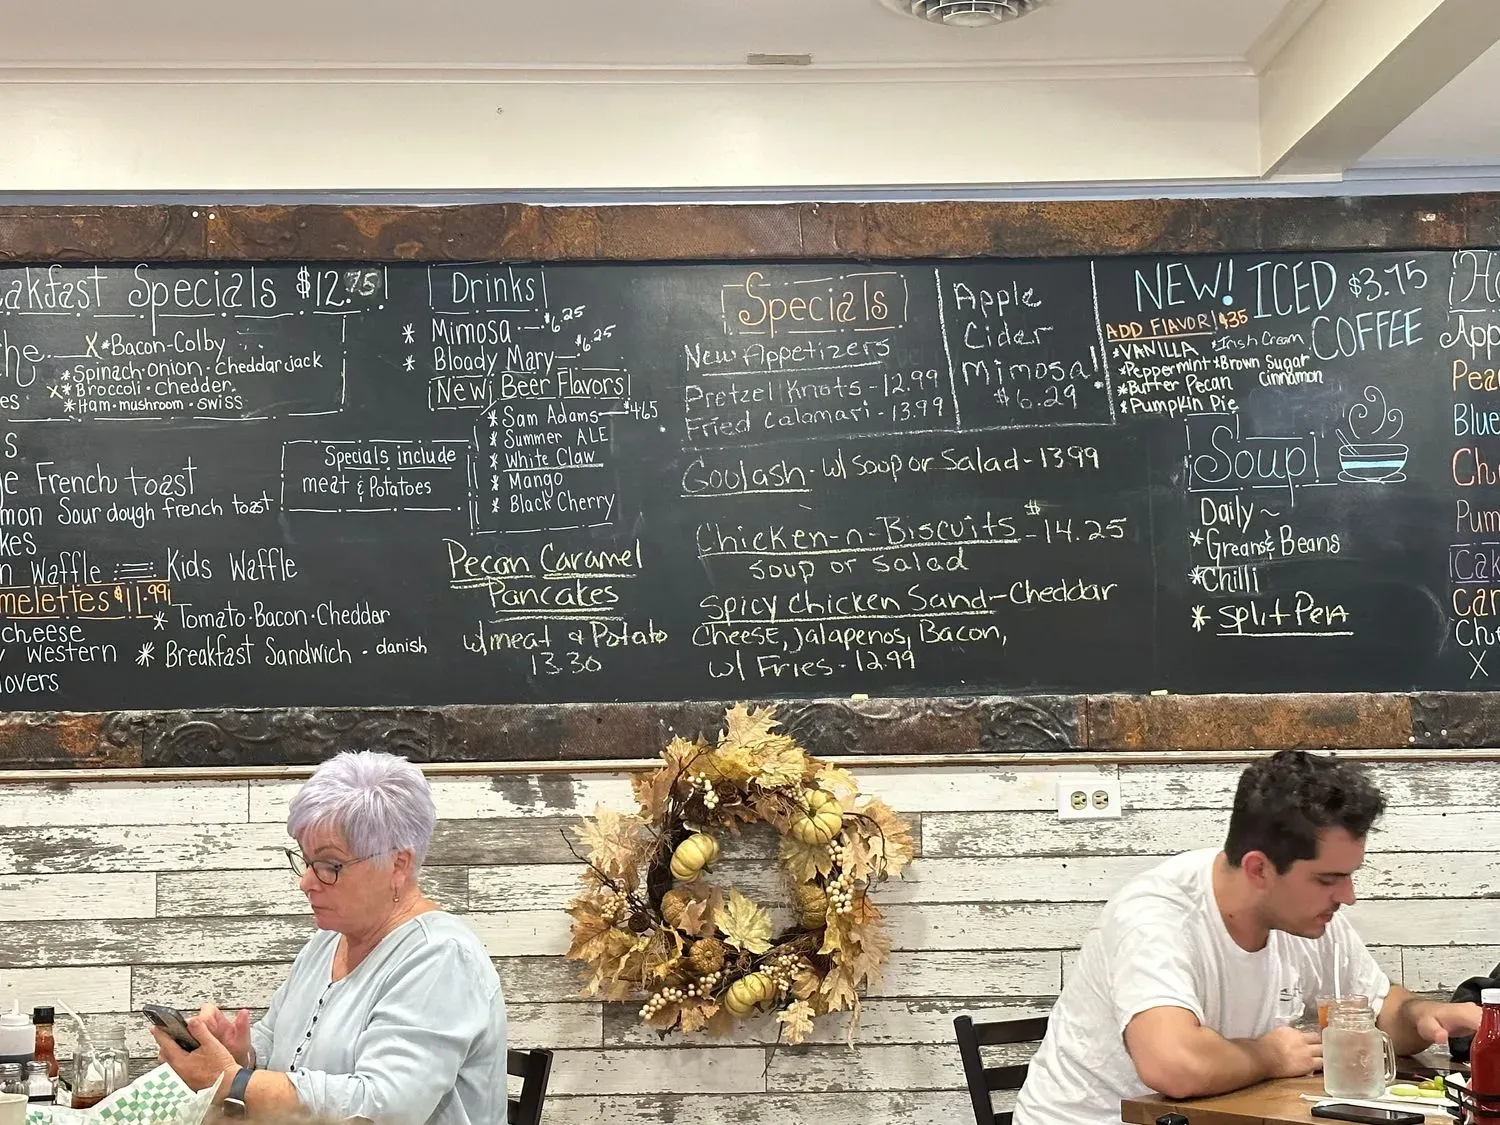 akfast Specials $12.75!
he X*Bacon-Colby
*Spinach·onion·Cheddarjack
X*Broccoli·Chedder.
es *Ham·mushroom·Swiss
s
e French toast
mon Sour dough french toast
kes
n Waffle Kids Waffle
melettes $11.99
*Tomato·Bacon·Cheddar
cheese
western * Breakfast Sandwich · danish
lovers
Specials include
meat & Potatoes
Drinks
* Mimosa $6.25
* Bloody Mary $6.25
New Beer Flavors
* Sam Adams $4.65
* Summer ALE
* White Claw
* Mango
* Black Cherry
Pecan Caramel
Pancakes
w/meat & Potato
13.30
Specials
New Appetizers
Pretzel Knots - 12.99
Fried Calamari - 13.99
Goulash - w/ Soup or Salad - 13.99
Chicken-n-Biscuits - $14.25
soup or salad
Spicy Chicken Sand - Cheddar
Cheese, Jalapenos, Bacon,
w/ Fries - 12.99
Apple
Cider
Mimosa!
$6.29
NEW! ICED $3.75
COFFEE
ADD FLAVOR! $.35
*VANILLA *Irish Cream
*Peppermint *Brown Sugar
Cinnamon
*Butter Pecan
*Pumpkin Pie
Soup!
Daily ~
*Greans & Beans
*Chilli
* Split Pea
App
Pea
Blue
Ch
Pum
Cak
Car
X